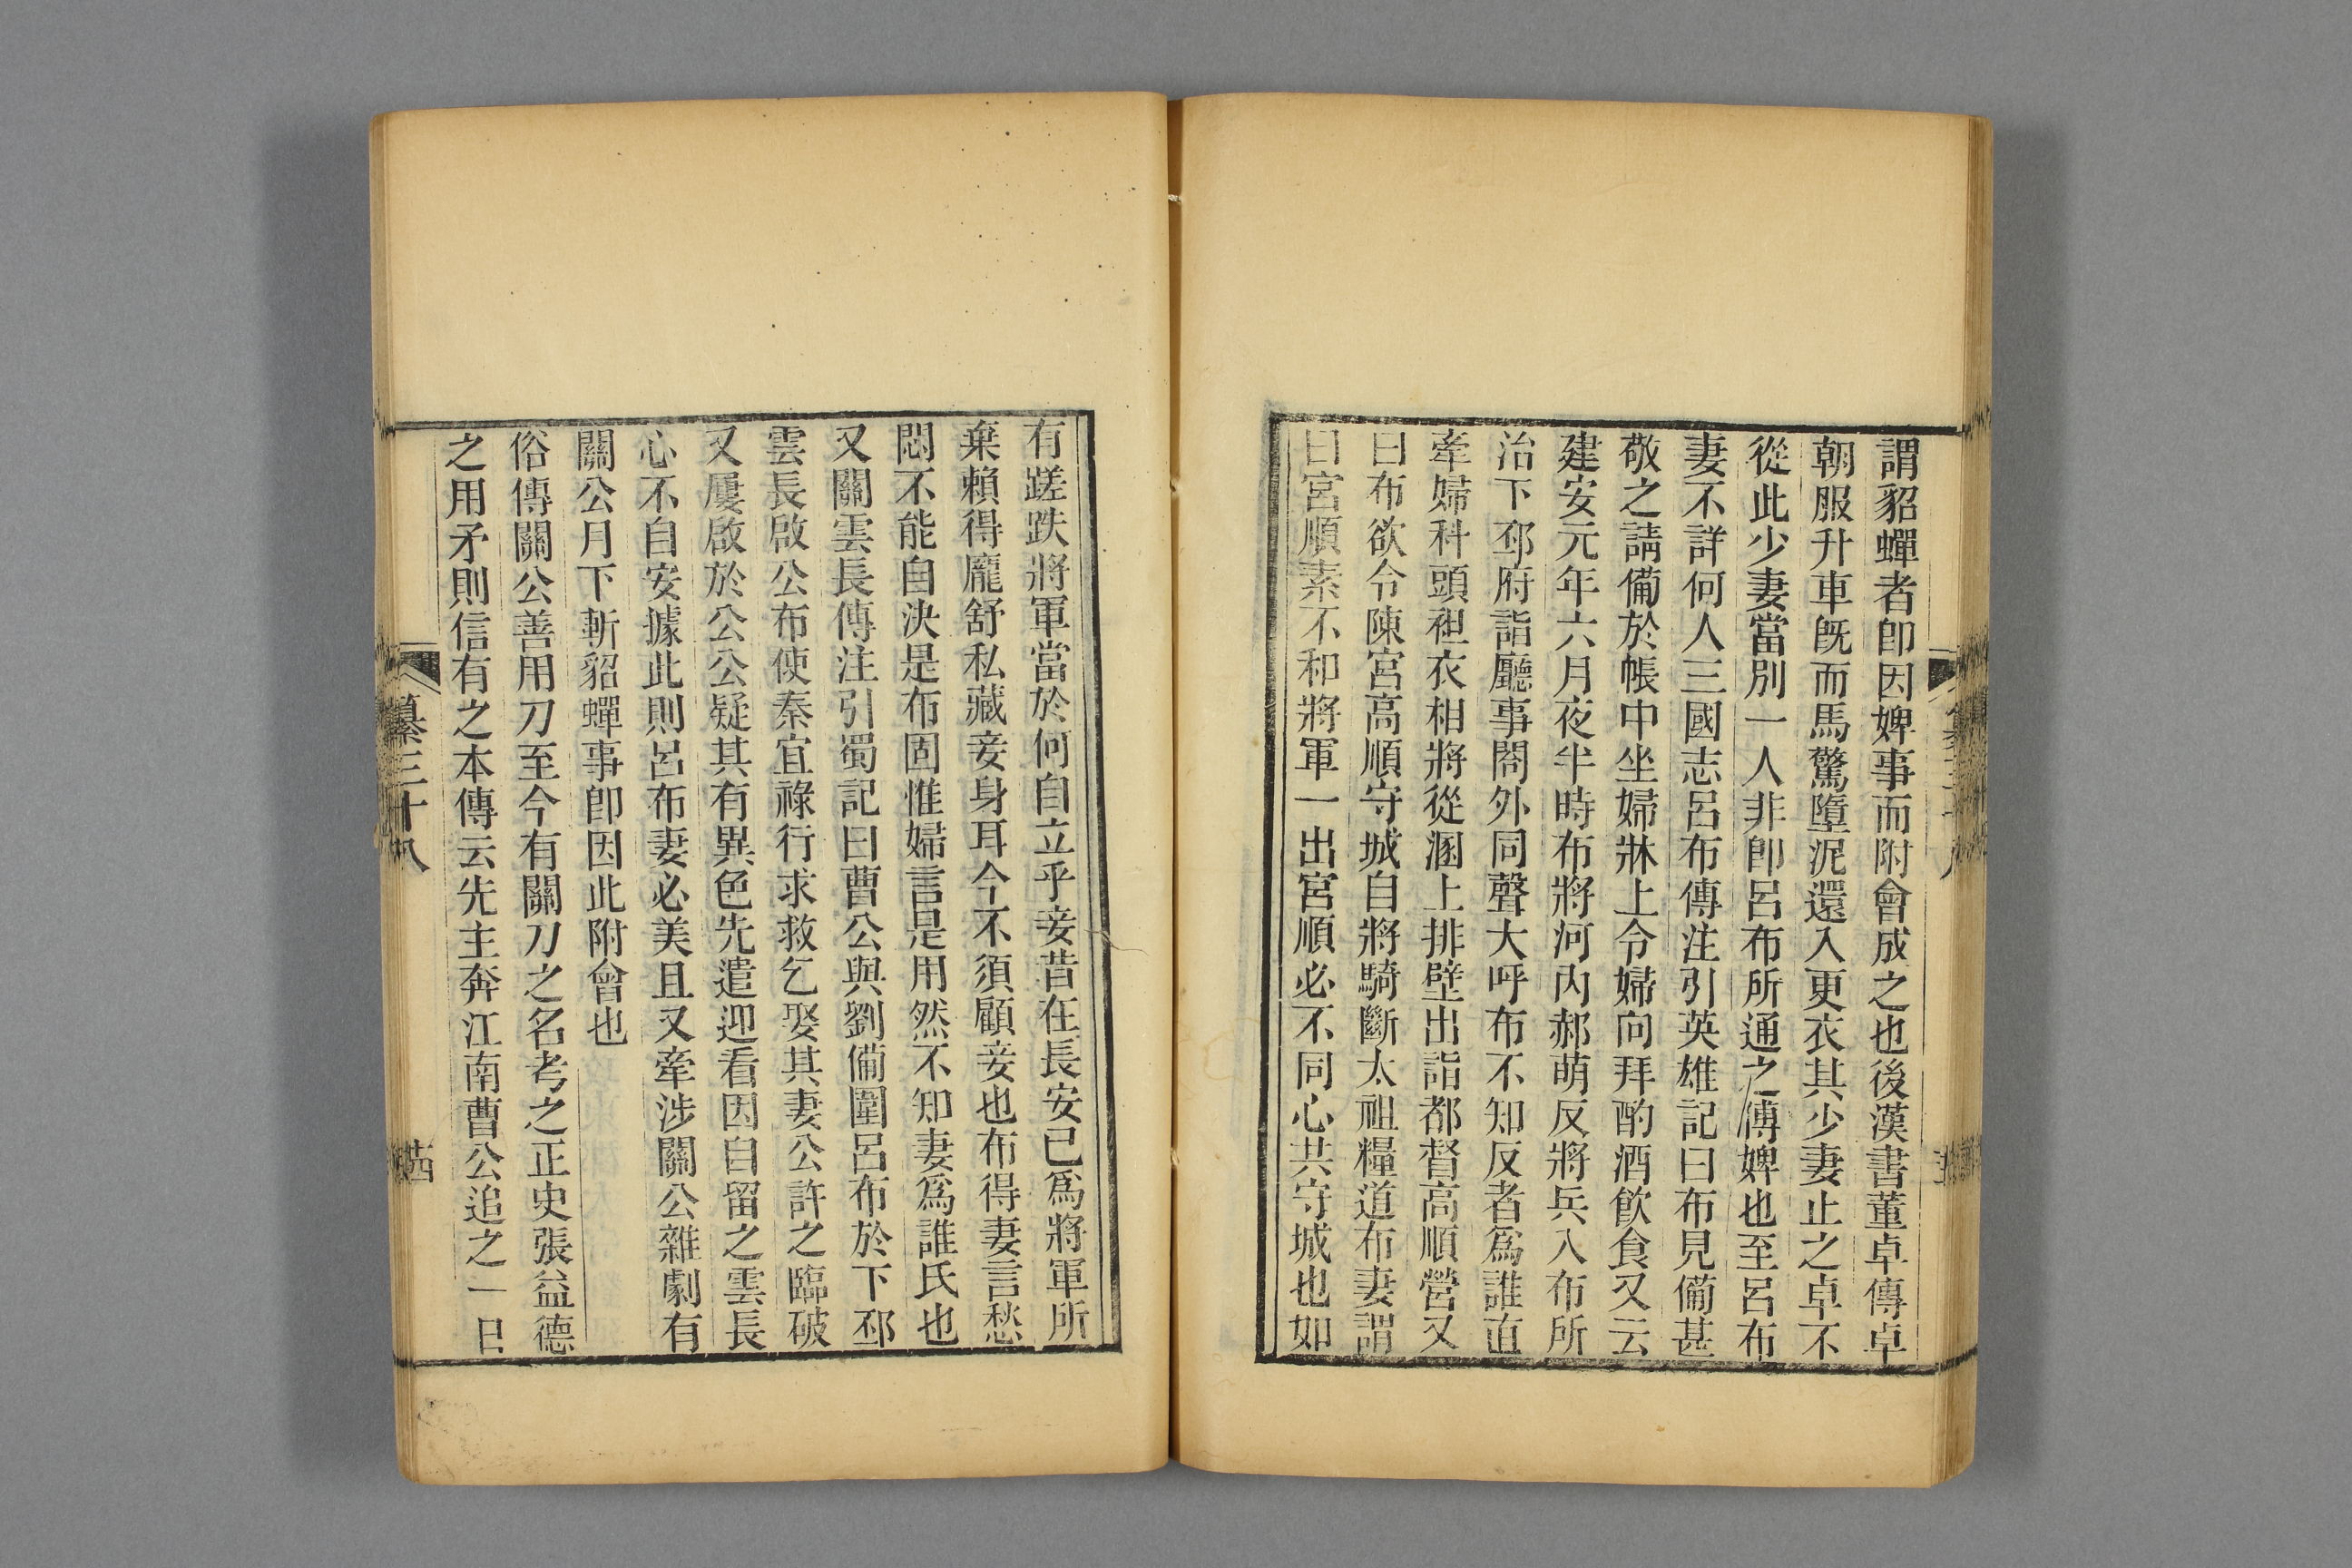 謂貂蟬者卽因婢事而附會成之也後漢書董卓傳卓
朝服升車旣而馬驚墮泥還入更衣其少妻止之卓不
從此少妻當別一人非卽呂布所通之傅婢也至呂布
妻不詳何人三國志呂布傳注引英雄記曰布見備甚
敬之請備於帳中坐婦牀上令婦向拜酌酒飮食又云
建安元年六月夜半時布將河內郝萌反將兵入布所
治下邳府詣廳事閤外同聲大呼布不知反者爲誰直
牽婦科頭袒衣相將從溷上排壁出詣都督高順營又
曰布欲令陳宮高順守城自將騎斷太祖糧道布妻謂
曰宮順素不和將軍一出宮順必不同心共守城也如
有蹉跌將軍當於何自立乎妾昔在長安已爲將軍所
棄賴得龐舒私藏妾身耳今不須顧妾也布得妻言愁
悶不能自決是布固惟婦言是用然不知妻爲誰氏也
又關雲長傳注引蜀記曰曹公與劉備圍呂布於下邳
雲長啟公布使秦宜祿行求救乞娶其妻公許之臨破
又屢啟於公公疑其有異色先遣迎看因自留之雲長
心不自安據此則呂布妻必美且又牽涉關公雜劇有
關公月下斬貂蟬事卽因此附會也
俗傳關公善用刀至今有關刀之名考之正史張益德
之用矛則信有之本傳云先主奔江南曹公追之一日
纂三十八